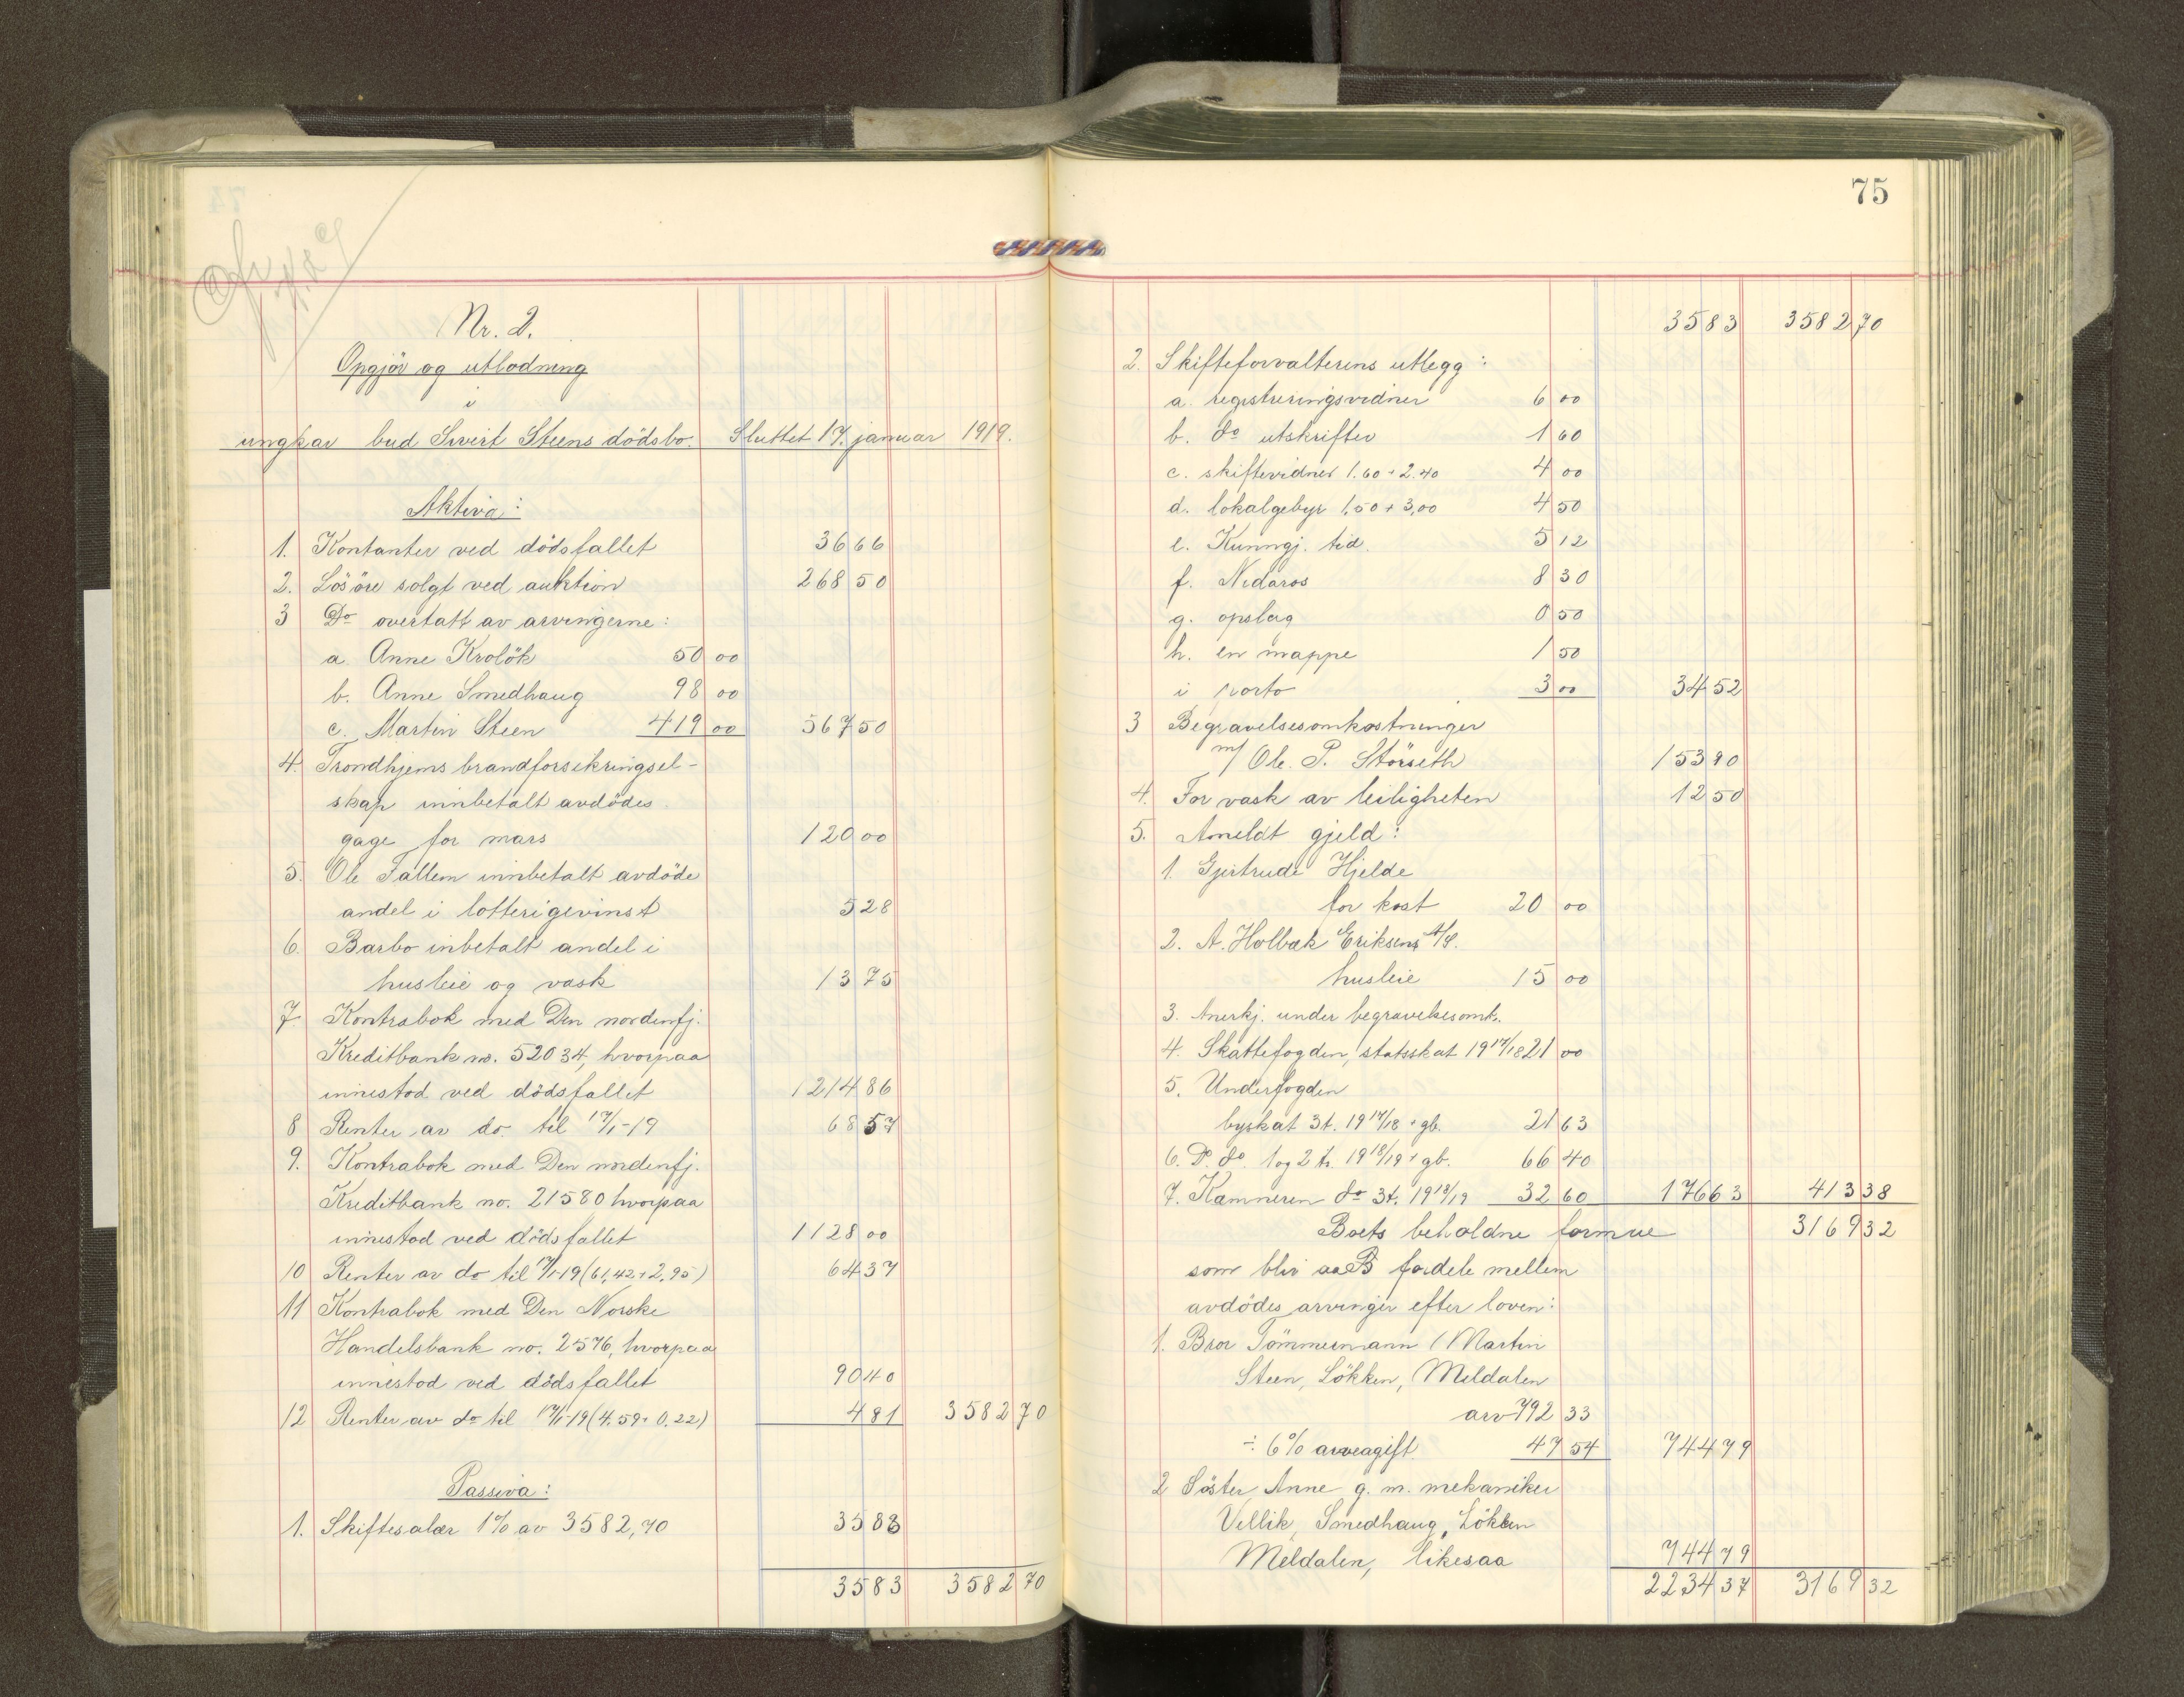 Nr. 2.
Opgjör og utlodning
i
ungkar bud Sivert Steens dödsbo. Sluttet 17. januar 1919.
Aktiva:
1. Kontanter ved dödsfallet 36 66
2. Lösöre solgt ved auktion 268 50
3 Do overtatt av arvingerne:
a. Anne Krolök 50 00
b. Anne Smedhaug 98 00
c. Martin Steen 419 00 567 50
4. Trondhjems brandforsikringsel-
skap innbetalt avdödes
gage for mars 120 00
5. Ole Tallem innbetalt avdöde
andel i lotterigevinst 5 28
6. Barbo inbetalt andel i
husleie og vask 13 75
7 Kontrabok med Den nordenfj.
Kreditbank no. 52034, hvorpaa
innestod ved dödsfallet 1214 86
8 Renter av do til 17/1-19 68 57
9. Kontrabok med Den nordenfj.
Kreditbank no. 21580 hvorpaa
innestod ved dödsfallet 1128 00
10 Renter av do til 17/1-19 (61,42+2,95) 64 37
11 Kontrabok med Den Norske
Handelsbank no. 2576, hvorpaa
innestod ved dödsfallet 90 40
12 Renter av do til 17/1-19 (4.59+0.22) 4 81 3582 70
Passiva:
1. Skiftesalær 1% av 3582,70 35 83
35 83 3582 70
75
35 83 3582 70
2. Skifteforvalterens utlegg:
a. registreringsvidner 6 00
b. do utskrifter 1 60
c. skiftevidner 1.60+2.40 4 00
d. lokalgebyr 1,50+3,00 4 50
e. Kunngj. tid. 5 12
f. Nidaros 8 30
g. opslag 0 50
h. en mappe 1 50
i porto 3 00 34 52
3 Begravelsesomkostninger
m/ Ole. P. Störseth 153 90
4. For vask av leiligheten 12 50
5. Anmeldt gjeld:
1. Gjertrude Hjelde
for kost 20 00
2. A. Holbæk Eriksens A/S.
husleie 15 00
3. Anerkj. under begravelsesomk.
4. Skattefogden, statsskat 1917/18 21 00
5. Underfogden
byskat 3t. 1917/18 + gb. 21 63
6. Do do 1 og 2 t. 1918/19 + gb. 66 40
7. Kæmneren do 3t. 1918/19 32 60 176 63 413 38
Boets beholdne formue 3169 32
som blir aa fordele mellem
avdödes arvinger efter loven:
1. Bror Tömmermann Martin
Steen, Lökken, Meldalen
arv 792 33
÷ 6% arveavgift 47 54 744 79
2 Söster Anne g. m. mekaniker
Vellik, Smedhaug, Lökken
Meldalen, likesaa 744 79
2234 37 3169 32